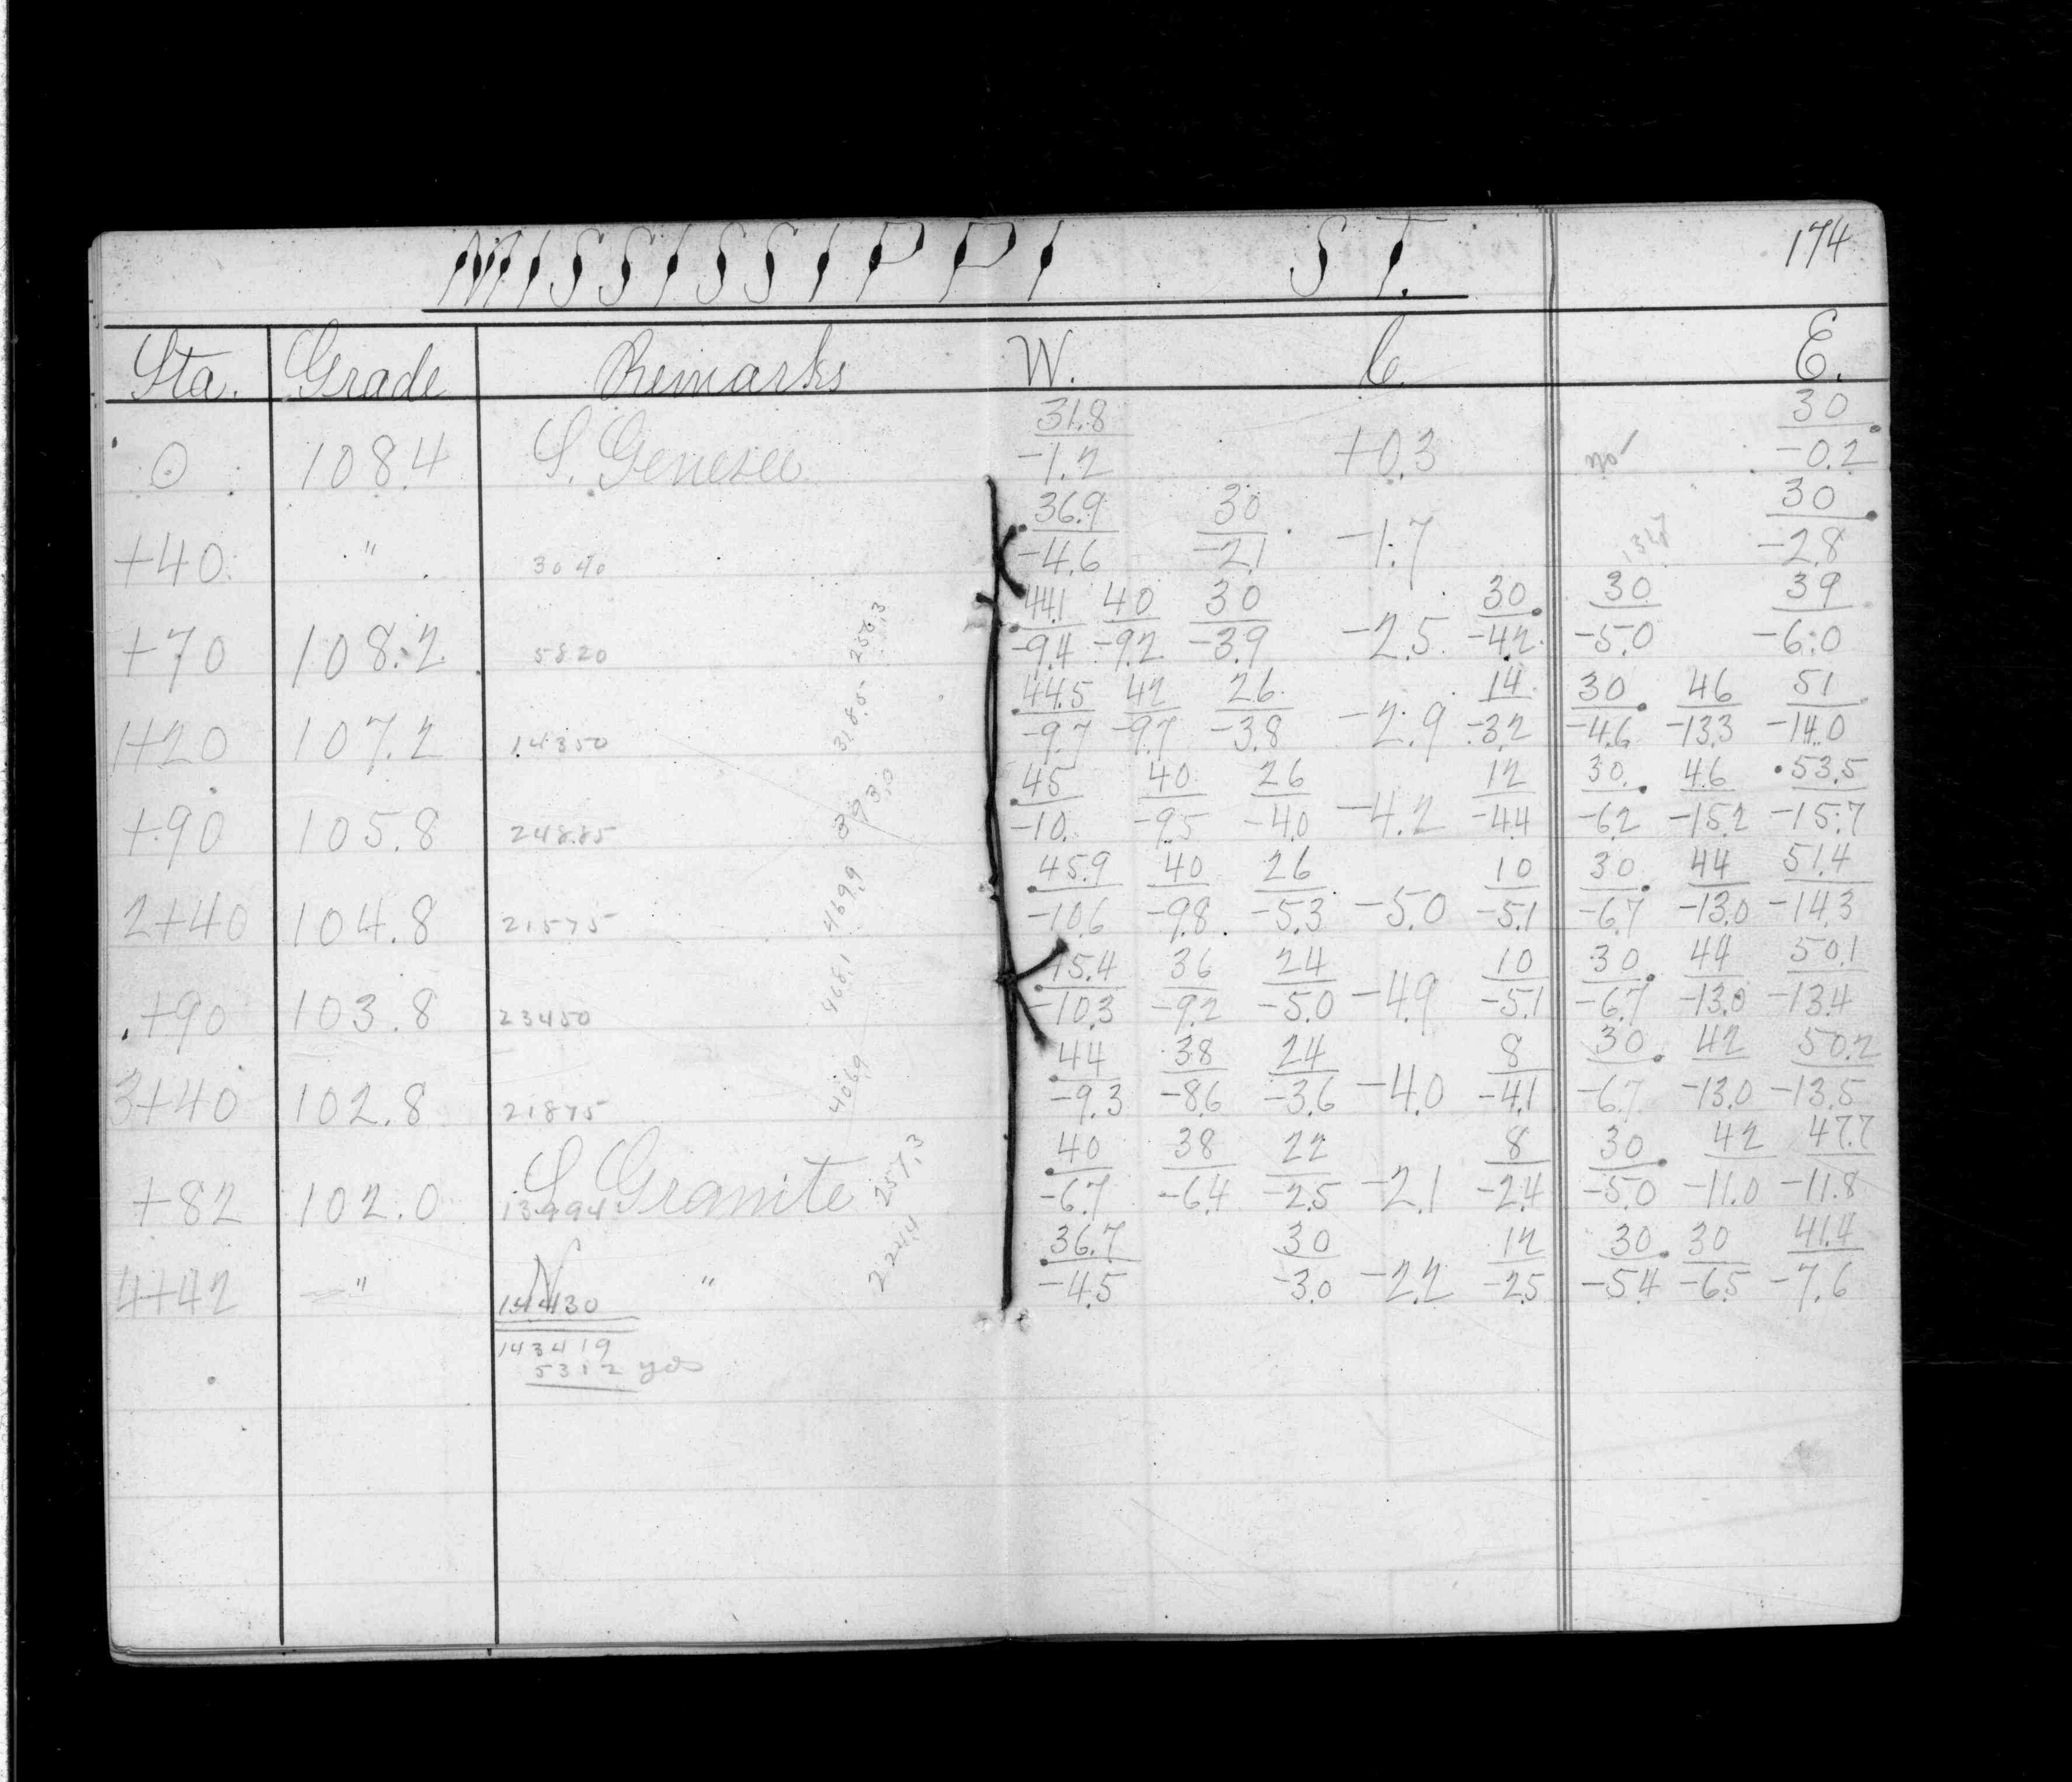 MISSISSIPPI ST. 174
Sta. Grade Remarks W. C. E.
0 108.4 S. Genesee 31.8/-1.2 +0.3 no 30/-0.2
+40 " 3040 36.9/-4.6 30/-2.1 -1.7 30/-2.8
+70 108.2 5820 256.3 44.1/-9.4 40/-9.2 30/-3.9 -2.5 30/-4.2 30/-5.0 39/-6.0
1+20 107.2 14350 318.5 44.5/-9.7 42/-9.7 26/-3.8 -2.9 14/-3.2 30/-4.6 46/-13.3 51/-14.0
+90 105.8 24885 393.0 45/-10. 40/-9.5 26/-4.0 -4.2 12/-4.4 30/-6.2 46/-15.2 53.5/-15.7
2+40 104.8 21575 469.9 45.9/-10.6 40/-9.8 26/-5.3 -5.0 10/-5.1 30/-6.7 44/-13.0 51.4/-14.3
+90 103.8 23450 468.1 45.4/-10.3 36/-9.2 24/-5.0 -4.9 10/-5.1 30/-6.7 44/-13.0 50.1/-13.4
3+40 102.8 21875 406.9 44/-9.3 38/-8.6 24/-3.6 -4.0 8/-4.1 30/-6.7 42/-13.0 50.2/-13.5
+82 102.0 S Granite 13994 257.3 40/-6.7 38/-6.4 22/-2.5 -2.1 8/-2.4 30/-5.0 42/-11.0 47.7/-11.8
4+42 " N " 14430 224.4 36.7/-4.5 30/-3.0 -2.2 12/-2.5 30/-5.4 30/-6.5 41.4/-7.6
143419
5312 yds